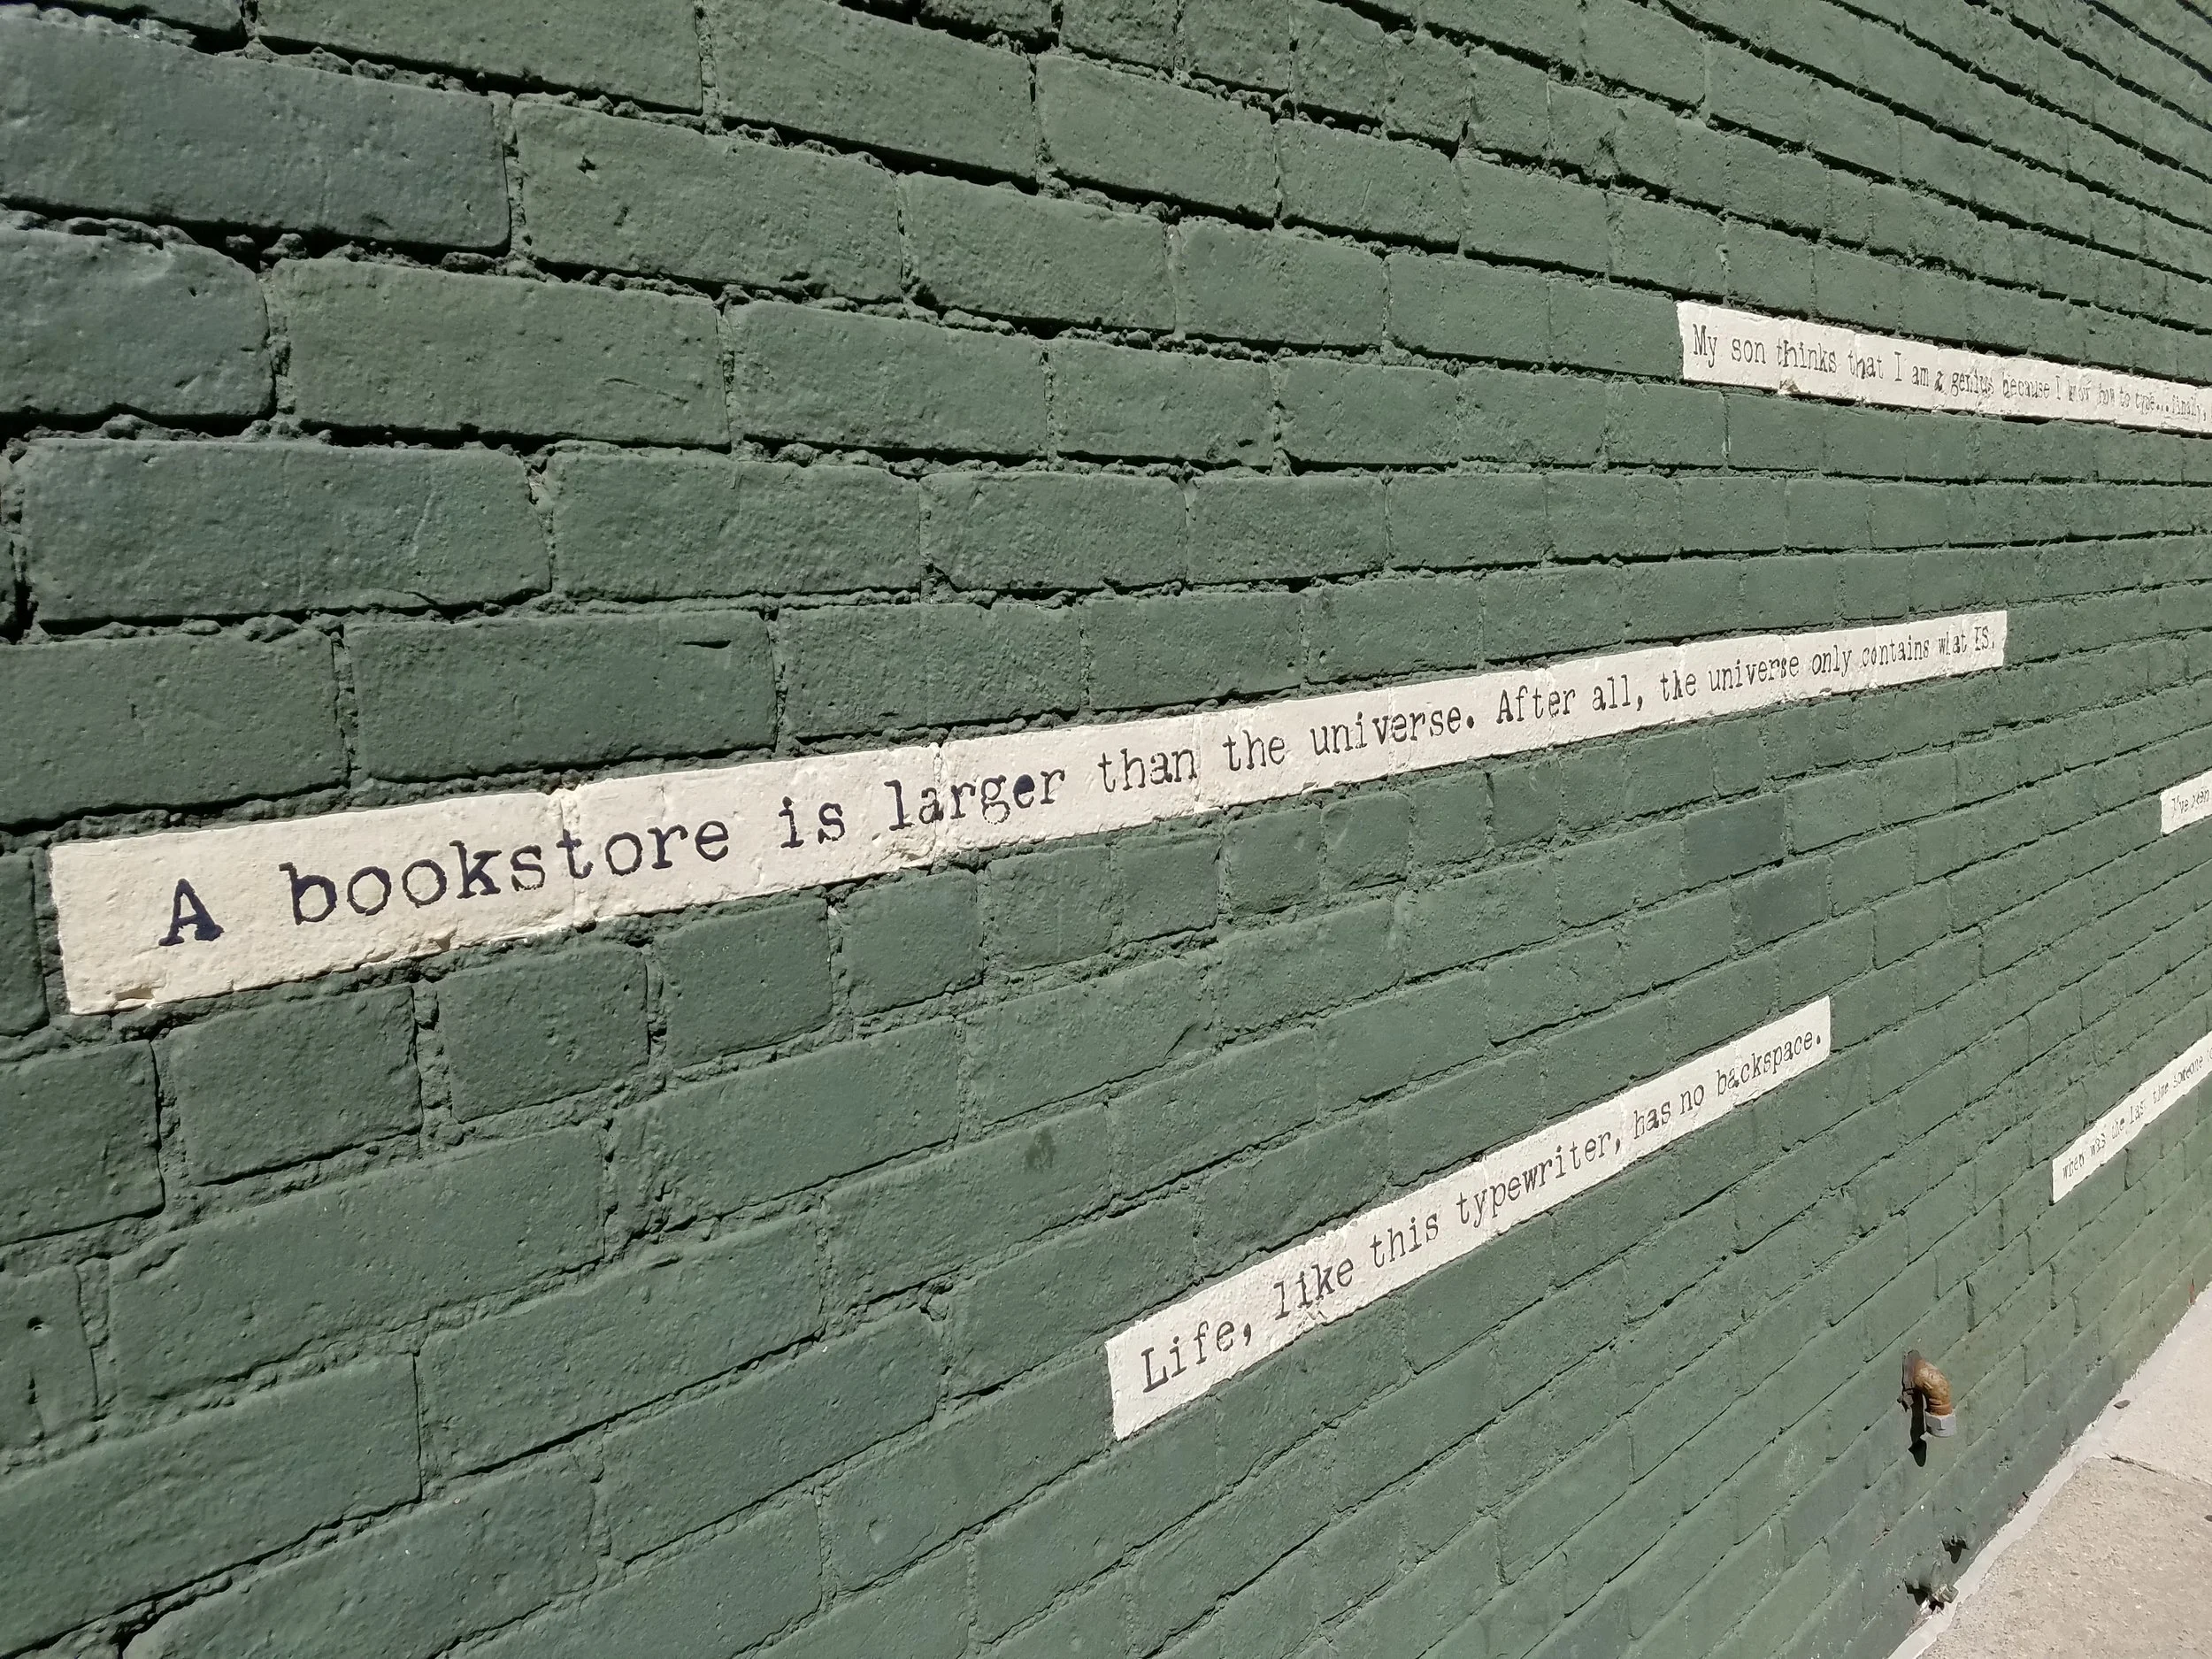 My son thinks that I am a genius because I know how to type...finally,
A bookstore is larger than the universe. After all, the universe only contains what IS.
I've been
Life, like this typewriter, has no backspace.
when was the last time someone